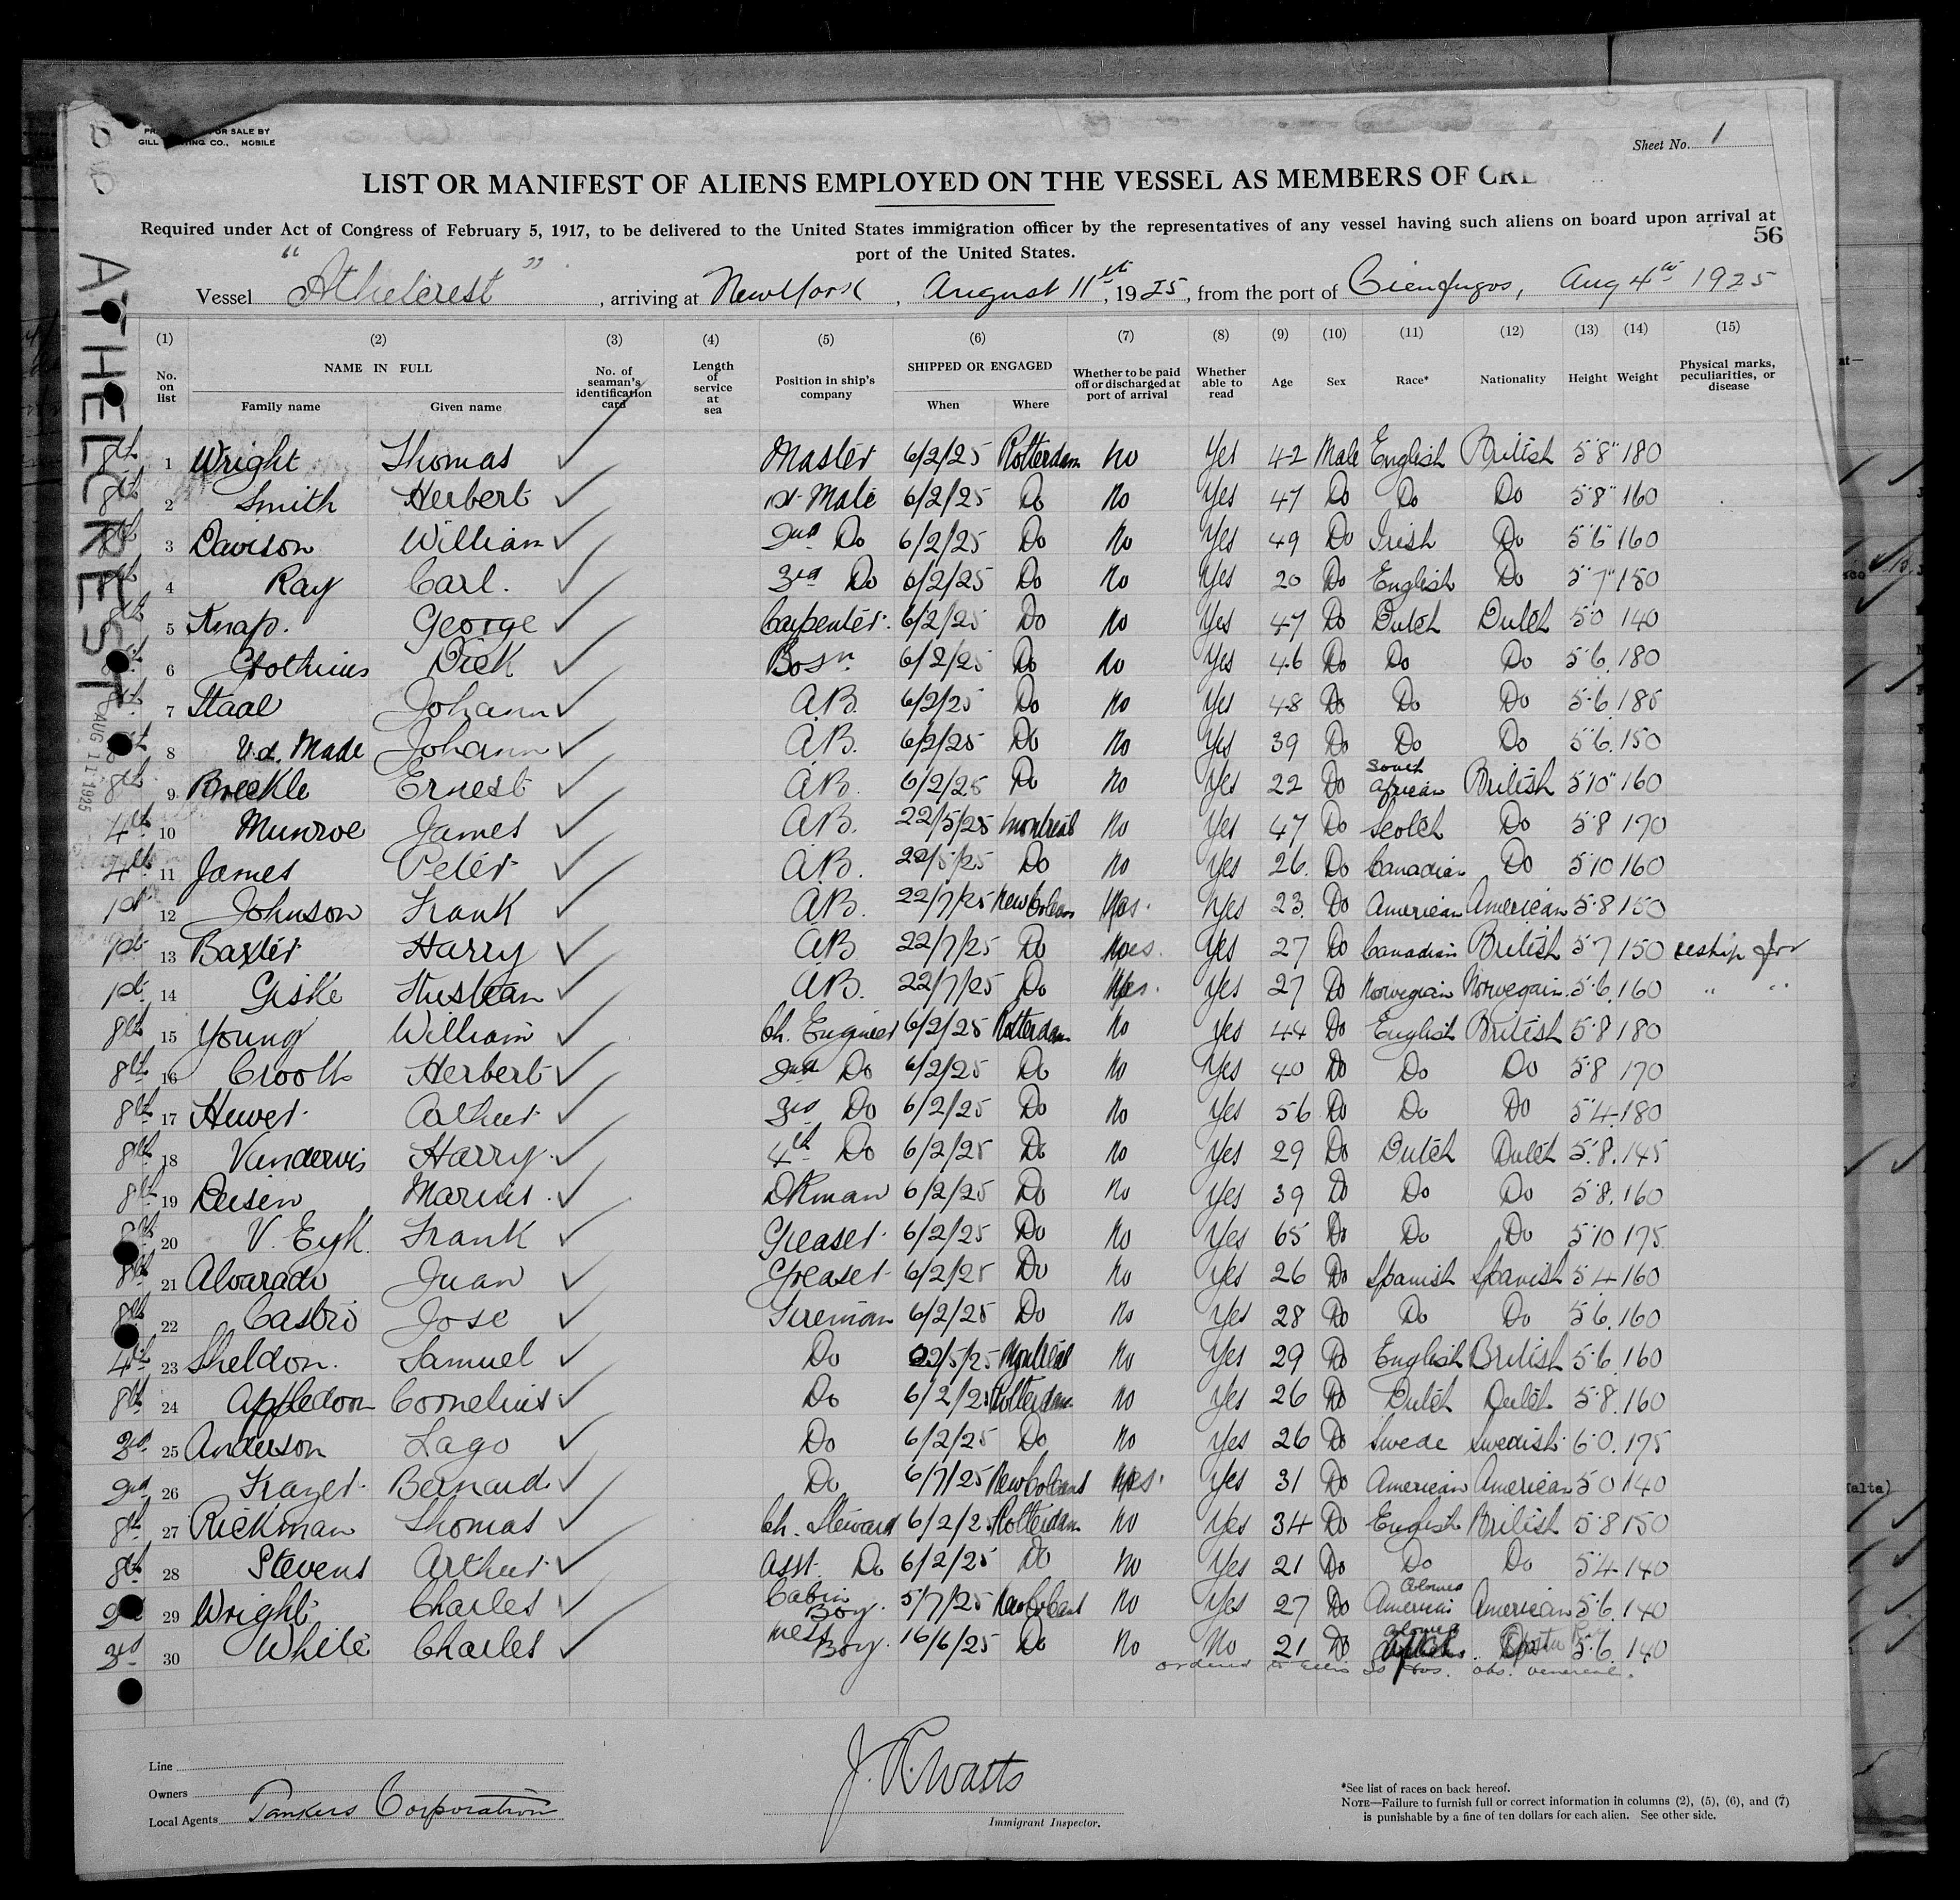 FOR SALE BY
GILL PRINTING CO., MOBILE
Sheet No. 1
LIST OR MANIFEST OF ALIENS EMPLOYED ON THE VESSEL AS MEMBERS OF CRE
Required under Act of Congress of February 5, 1917, to be delivered to the United States immigration officer by the representatives of any vessel having such aliens on board upon arrival at
56
port of the United States.
Vessel "Athelcrest", arriving at New York, August 11th, 1925, from the port of Cienfugos, Aug 4th 1925
ATHELCREST
AUG 11 1925
(1) (2) (3) (4) (5) (6) (7) (8) (9) (10) (11) (12) (13) (14) (15)
No. on list NAME IN FULL Family name Given name No. of seaman's identification card Length of service at sea Position in ship's company SHIPPED OR ENGAGED When Where Whether to be paid off or discharged at port of arrival Whether able to read Age Sex Race* Nationality Height Weight Physical marks, peculiarities, or disease
8th 1 Wright Thomas Master 6/2/25 Rotterdam No Yes 42 Male English British 5'8" 180
8th 2 Smith Herbert 1st Mate 6/2/25 Do No Yes 47 Do Do Do 5'8" 160
8th 3 Davison William 2nd Do 6/2/25 Do No Yes 49 Do Irish Do 5'6 160
8th 4 Ray Carl. 3rd Do 6/2/25 Do No Yes 20 Do English Do 5'7" 150
8th 5 Knap. George Carpenter. 6/2/25 Do No Yes 47 Do Dutch Dutch 5'0 140
6 Grothuus Dick Bosn. 6/2/25 Do No Yes 46 Do Do Do 5'6. 180
7 Staal Johann A.B. 6/2/25 Do No Yes 48 Do Do Do 5'6. 185
8 V.d. Made Johann A.B. 6/2/25 Do No Yes 39 Do Do Do 5'6. 150
8th 9 Breckle Ernest A.B. 6/2/25 Do No Yes 22 Do South African British 5'10" 160
4th 10 Munroe James A.B. 22/5/25 Montreal No Yes 47 Do Scotch Do 5'8 170
4th 11 James Peter A.B. 22/5/25 Do No Yes 26. Do Canadian Do 5'10 160
1st 12 Johnson Frank A.B. 22/7/25 New Orleans Yes. Yes 23. Do American American 5'8 150
1st 13 Baxter Harry A.B. 22/7/25 Do Yes. Yes 27 Do Canadian British 5'7 150 reship for
1st 14 Giske A.B. 22/7/25 Do Yes. Yes 27 Do Norwegian Norwegain. 5'6. 160 " "
8th 15 Young William Ch. Engineer 6/2/25 Rotterdam No Yes 44 Do English British 5'8 180
8th 16 Crook Herbert 2nd Do 6/2/25 Do No Yes 40 Do Do Do 5'8 170
8th 17 Hewer Arthur 3rd Do 6/2/25 Do No Yes 56 Do Do Do 5'4. 180
8th 18 Vandervis Harry. 4th Do 6/2/25 Do No Yes 29 Do Dutch Dutch 5'.8. 145
8th 19 Deisen Marius. DKman 6/2/25 Do No Yes 39 Do Do Do 5'8. 160
8th 20 V. Eyk. Frank Greaser 6/2/25 Do No Yes 65 Do Do Do 5'10 175
8th 21 Alvarado Juan Greaser 6/2/25 Do No Yes 26 Do Spanish Spanish 5'4 160
8th 22 Castro Jose Fireman 6/2/25 Do No Yes 28 Do Do Do 5'6. 160
4th 23 Sheldon. Samuel Do 22/5/25 Montreal No Yes 29 Do English British 5'6. 160
8th 24 Appledoorn Cornelius Do 6/2/25 Rotterdam No Yes 26 Do Dutch Dutch. 5'8. 160
3rd 25 Anderson Lago Do 6/2/25 Do No Yes 26 Do Swede Swedish 6'0. 175
2nd 26 Frazer Bernard Do 6/7/25 New Orleans Yes. Yes 31 Do American American 5'0 140
8th 27 Rickman Thomas Ch. Steward 6/2/25 Rotterdam No Yes 34 Do English British 5'8 150
8th 28 Stevens Arthur Asst. Do 6/2/25 Do No Yes 21 Do Do Do 5'4. 140
29 Wright Charles Cabin Boy. 5/7/25 New Orleans No Yes 27 Do American American 5'6. 140
3rd 30 White Charles Mess Boy. 16/6/25 Do No No 21 Do 5'6. 140
ordered to Ellis Is obs. venereal.
Line
Owners
Local Agents Tankers Corporation
J. R. Watts
Immigrant Inspector.
*See list of races on back hereof.
NOTE—Failure to furnish full or correct information in columns (2), (5), (6), and (7)
is punishable by a fine of ten dollars for each alien. See other side.